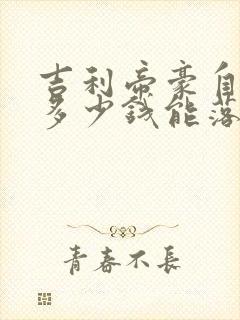 吉利帝豪自
多少钱能落
青春不長